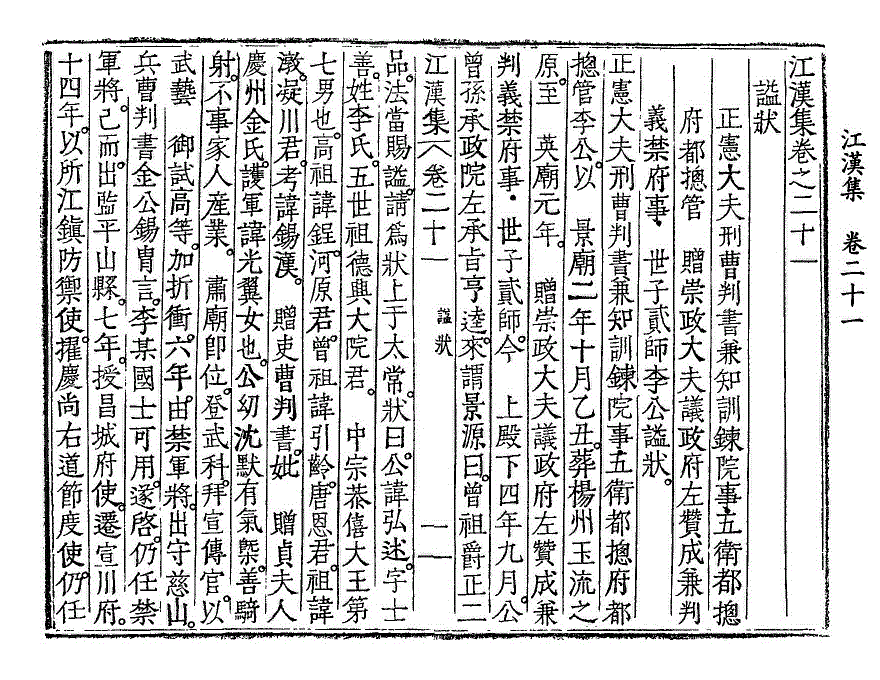 江漢集 卷二十一
江漢集卷之二十一
諡狀
正憲大夫刑曹判書兼知訓鍊院事五衛都摠
府都摠管 贈崇政大夫議政府左贊成兼判
義禁府事 世子貳師李公諡狀。
正憲大夫刑曹判書兼知訓鍊院事五衛都摠府都
摠管李公以 景廟二年十月乙丑。葬楊州玉流之
原。至 英廟元年。 贈崇政大夫議政府左贊成兼
判義禁府事,世子貳師。今 上殿下四年九月。公
曾孫承政院左承旨亨逵。來謂景源曰。曾祖爵正二
江漢集 卷二十一 諡狀 一一
品。法當賜諡。請爲狀上于太常。狀曰。公諱弘述。字士
善。姓李氏。五世祖德興大院君。 中宗恭僖大王第
七男也。高祖諱鋥。河原君。曾祖諱引齡。唐恩君。祖諱
潡。凝川君。考諱錫漢。 贈吏曹判書。妣 贈貞夫人
慶州金氏。護軍諱光翼女也。公幼沈默有氣槩。善騎
射。不事家人産業。 肅廟卽位。登武科。拜宣傳官。以
武藝 御試高等。加折衝。六年。由禁軍將。出守慈山。
兵曹判書金公錫胄言。李某國士可用。遂啓。仍任禁
軍將。已而出監平山縣。七年。授昌城府使。遷宣川府。
十四年。以所江鎭防禦使。擢慶尙右道節度使。仍任